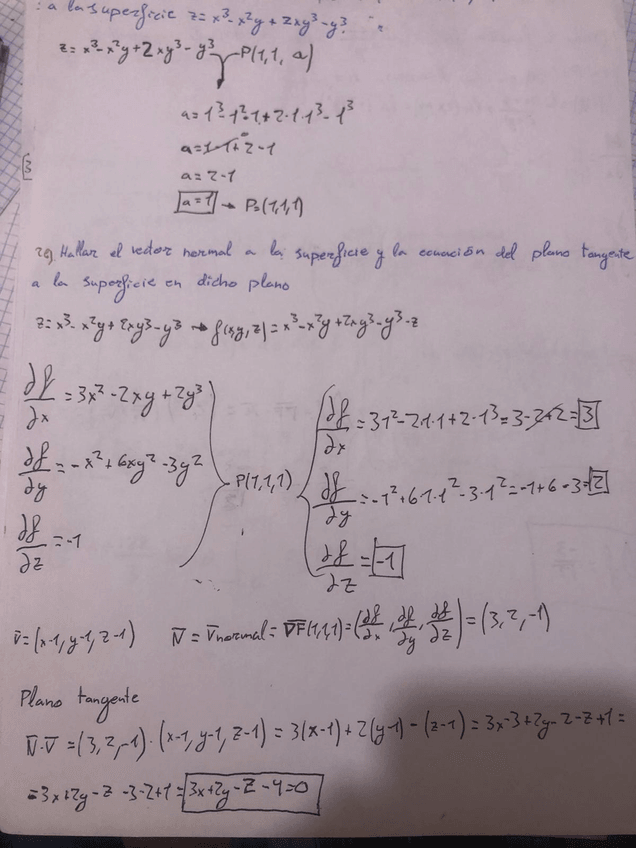 : a la superficie z=x³-x²y+2xy³-y³?
z=x³-x²y+2xy³-y³ P(1,1,a)
a=1³-1²·1+2·1·1³-1³
a=1-1+2-1
a=2-1
a=1 → P=(1,1,1)
2º) Hallar el vector normal a la superficie y la ecuación del plano tangente
a la superficie en dicho plano
z=x³-x²y+2xy³-y³ → f(x,y,z)=x³-x²y+2xy³-y³-z
∂f/∂x = 3x²-2xy+2y³
∂f/∂y = -x²+6xy²-3y²
∂f/∂z = -1
P(1,1,1)
∂f/∂x = 3·1²-2·1·1+2·1³=3-2+2=3
∂f/∂y = -1²+6·1·1²-3·1²=-1+6-3=2
∂f/∂z = -1
v̄=(x-1, y-1, z-1) N̄ = v̄normal = ∇F(1,1,1)=(∂f/∂x, ∂f/∂y, ∂f/∂z)=(3,2,-1)
Plano tangente
N̄·v̄ =(3,2,-1)·(x-1, y-1, z-1) = 3(x-1)+2(y-1)-(z-1)=3x-3+2y-2-z+1=
=3x+2y-z-3-2+1=3x+2y-z-4=0